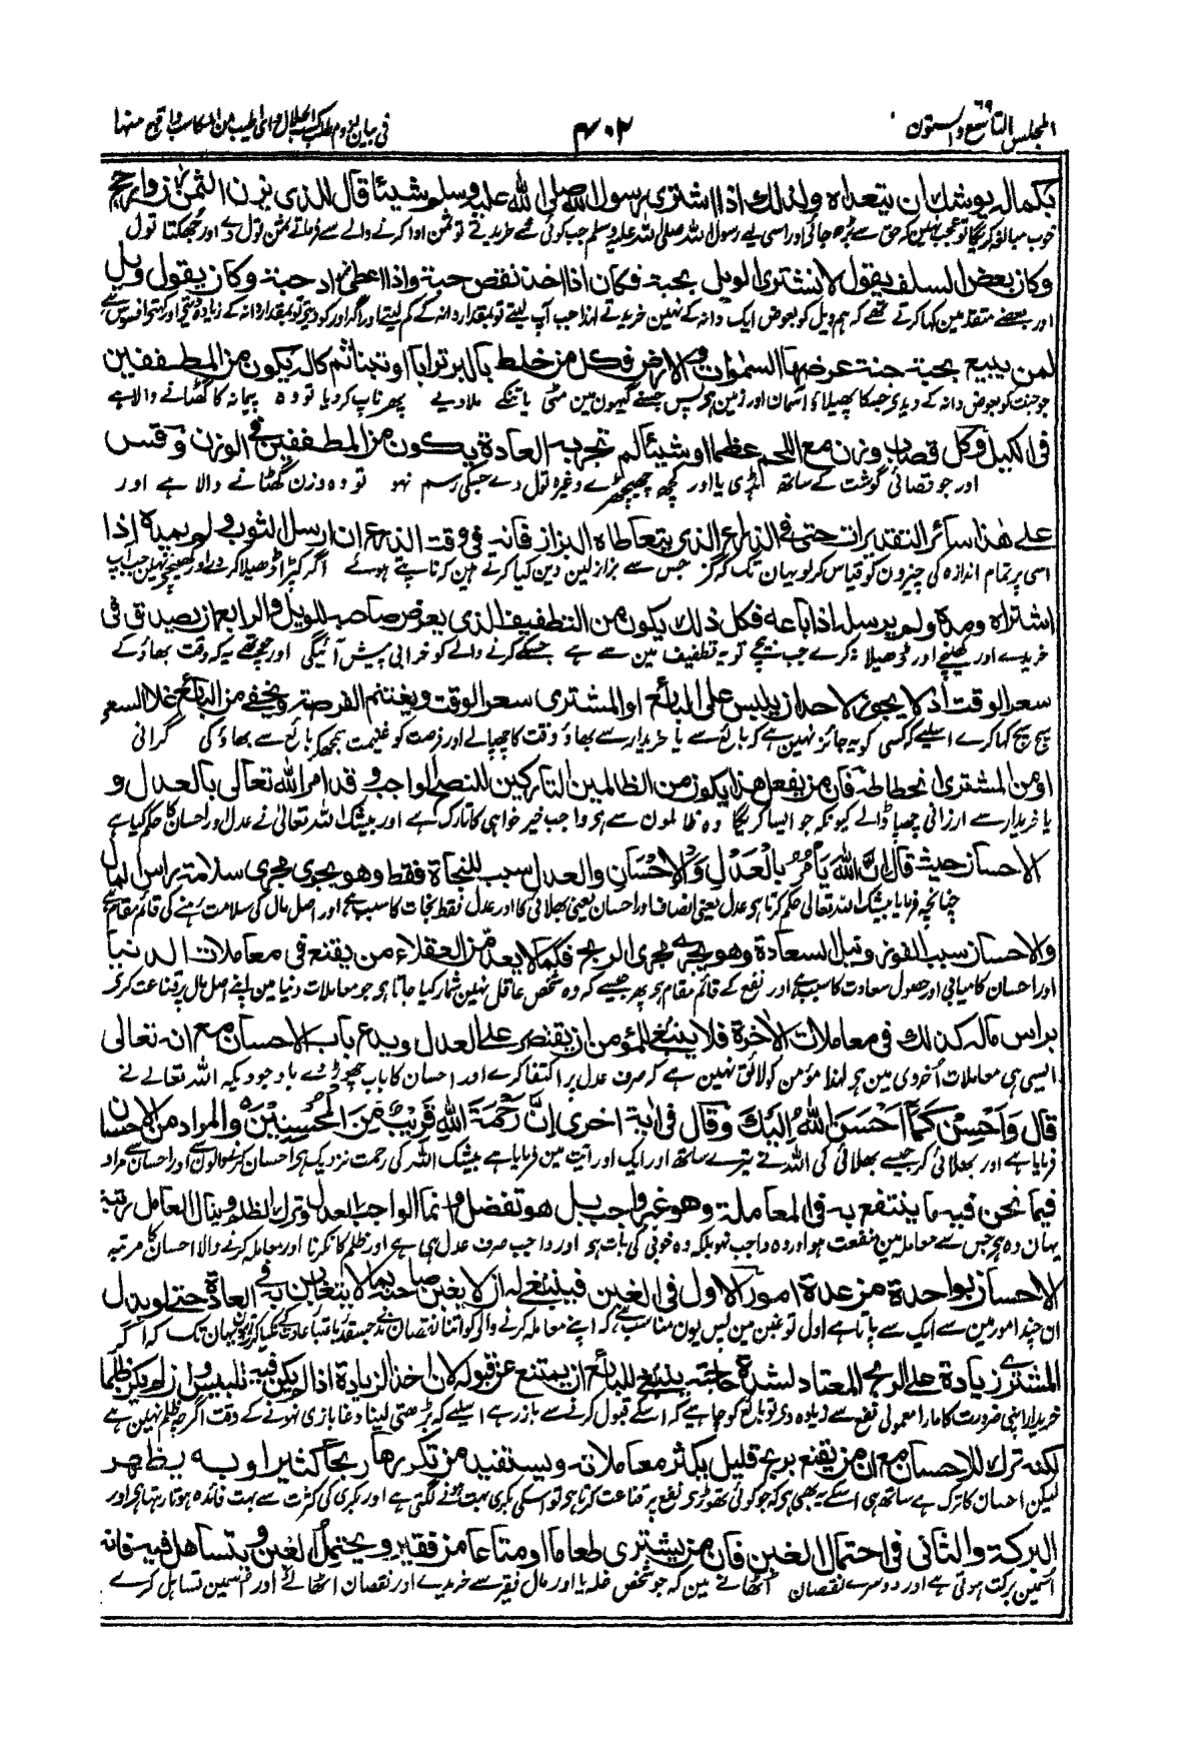 المجلس التاسع والستون ٦٩
٤٠٢
فى بيان لزوم طلب كسب الحلال واى اطيب من المكاسب واقبح منها
بكماله يوشك ان يتعداه ولذلك اذا اشترى رسول الله صلى الله عليه وسلم شيئا قال للذى يزن الثمن زن وارجح
خوب مبالغہ کریگا تو عجب نہیں کہ حق سے بڑھ جائی اور اسی لیے رسول اللہ صلی اللہ علیہ وسلم جب کوئی شے خریدتے تو ثمن ادا کرنے والے سے فرماتے ثمن تول دے اور جھکتا تول
وكان بعض السلف يقول لا نشترى الويل بحبة فكان اذا اخذ نقص حبة واذا اعطى زاد حبة وكان يقول ويل
اور بعضے متقدمین کہا کرتے تھے کہ ہم ویل کو بعوض ایک دانہ کے نہین خریدتے لہذا جب آپ لیتے تو بمقدار دانہ کے کم لیتے اور اگر اور کو دیتے تو بمقدار دانہ کے زیادہ دیتے اور کہتے افسوس ہے
لمن يبيع بحبة جنة عرضها السموات والارض فكل من خلط بالبر ترابا او تبنا ثم كاله يكون من المطففين
جو جنت کو بعوض دانہ کے دیدی جسکا پھیلاؤ آسمان اور زمین ہی پس جسنے گیہون مین مٹی یا تنکے ملا دیے پھر ناپ کر دیا تو وہ پیمانہ کا گھٹانے والا ہے
فى الكيل وكل قصاب وزن مع اللحم عظما او شيئا لم تجر به العادة يكون من المطففين فى الوزن وقس
اور جو قصائی گوشت کے ساتھ ہڈی یا اور کچھ چھیچھڑے وغیرہ تول دے جسکی رسم نہو تو وہ وزن گھٹانے والا ہے اور
على هذا سائر التقديرات حتى فى الذراع الذى يتعاطاه البزاز فانه فى وقت الذرع ان ارسل الثوب ولم يمده اذا
اسی پر تمام اندازہ کی چیزون کو قیاس کرلو یہان تک کہ گز جس سے بزاز لین دین کیا کرتے ہین کہ ناپتے ہوئے اگر کپڑا ڈھیلا کر دے اور کھینچے نہین جب آپ
اشتراه ومده ولم يرسله اذا باعه فكل ذلك يكون من التطفيف الذى يعرض صاحبه للويل والرابع ان يصدق فى
خریدے اور کھینچے اور ڈھیلا نہ کرے جب بیچے تو یہ تطفیف مین سے ہے جسکے کرنے والے کو خرابی پیش آئیگی اور چوتھے یہ کہ وقت بھاؤ کے
سعر الوقت اذ لا يجوز لاحد ان يلبس على البائع او المشترى سعر الوقت ويغتنم الفرصة ويخفى من البائع غلا السعر
سچ سچ کہا کرے اسلیے کہ کسی کو یہ جائز نہین ہے کہ بائع سے یا خریدار سے بھاؤ وقت کا چھپالے اور فرصت کو غنیمت سمجھکر بائع سے بھاؤ کی گرانی
او من المشترى انحطاطه فان من يفعل هذا يكون من الظالمين التاركين للنصح الواجب وقد امر الله تعالى بالعدل و
یا خریدار سے ارزانی چھپا ڈالے کیونکہ جو ایسا کریگا وہ ظالمون سے ہی جو واجب خیر خواہی کا تارک ہے اور بیشک اللہ تعالیٰ نے عدل اور احسان کا حکم کیا ہے
الاحسان حيث قال اِنَّ اللهَ يَأْمُرُ بِالْعَدْلِ وَالْاِحْسَانِ والعدل سبب للنجاة فقط وهو يجرى مجرى سلامة راس المال
چنانچہ فرمایا بیشک اللہ تعالی حکم کرتا ہی عدل یعنی انصاف اور احسان یعنی بھلائی کا اور عدل فقط نجات کا سبب ہے اور اصل مال کی سلامت رہنے کی قائم مقام ہے
والاحسان سبب الفوز ونيل السعادة وهو يجرى مجرى الربح فكما لا يعد من العقلاء من يقنع فى معاملات الدنيا
اور احسان کامیابی اور حصول سعادت کا سبب ہے اور نفع کے قائم مقام ہی پھر جیسے کہ وہ شخص عاقل نہین شمار کیا جاتا ہی جو معاملات دنیا مین اپنے اصل مال پر قناعت کرے
براس ماله كذلك فى معاملات الاخرة فلا ينبغى للمؤمن ان يقتصر على العدل ويدع باب الاحسان مع انه تعالى
ایسی ہی معاملات اُخروی مین ہی لہذا مؤمن کو لائق نہین ہے کہ صرف عدل پر اکتفا کرے اور احسان کا باب چھوڑ دے باوجودیکہ اللہ تعالے نے
قال وَاَحْسِنْ كَمَا اَحْسَنَ اللهُ اِلَيْكَ وقال فى اية اخرى اِنَّ رَحْمَةَ اللهِ قَرِيْبٌ مِّنَ الْمُحْسِنِيْنَ والمراد من الاحسان
فرمایا ہے اور بھلائی کر جیسے بھلائی کی اللہ نے تیرے ساتھ اور ایک اور آیت مین فرمایا ہے بیشک اللہ کی رحمت نزدیک ہی احسان کرنیوالون سے اور احسان سے مراد
فيما نحن فيه ما ينتفع به فى المعاملة وهو غير واجب بل هو تفضل وانما الواجب العدل وترك الظلم وينال العامل رتبة
یہان وہ ہی جس سے معاملہ مین منفعت ہو اور وہ واجب نہو بلکہ وہ خوبی کی بات ہو اور واجب صرف عدل ہی ہے اور ظلم کا نکرنا اور معاملہ کرنے والا احسان کا مرتبہ
الاحسان بواحدة من عدة امور الاول فى الغبن فينبغى له ان لا يغبن صاحبه بما لا يتغابن به فى العادة حتى لو بذل
ان چند امور مین سے ایک سے پاتا ہے اول تو غبن مین پس یون مناسب ہے کہ اپنے معاملہ کرنے والی کو اتنا نقصان نہ دے جسقدر باعتبار عادت کے نہین یہان تک کہ اگر
المشترى زيادة على الربح المعتاد لشدة حاجته ينبغى للبائع ان يمتنع عن قبوله لان اخذ الزيادة اذا لم يكن فيه تلبيس وان لم يكن ظلما
خریدار اپنی ضرورت کا مارا معمولی نفع سے زیادہ دی تو بائع کو چاہیے کہ اسکے قبول کرنے سے باز رہے اسلیے کہ بڑھتی لینا دغا بازی نہونے کے وقت اگرچہ ظلم نہین ہے
لكنه ترك للاحسان مع ان من يقنع بربح قليل يكثر معاملاته ويستفيد من تكررها ربحا كثيرا وبه يظهر
لیکن احسان کا ترک ہے ساتھ ہی اسکے یہ بھی ہی کہ جو کوئی تھوڑی نفع پر قناعت کرتا ہی تو اسکی بکری بہت ہونے لگتی ہے اور بکری کی کثرت سے بہت فائدہ ہوتا رہتا ہی اور
البركة والثانى فى احتمال الغبن فان من يشترى طعاما او متاعا من فقير ويحتمل الغبن ويتساهل فيه فانه
اسمین برکت ہوتی ہے اور دوسرے نقصان اُٹھانے مین کہ جو شخص غلہ یا اور مال فقیر سے خریدے اور نقصان اٹھالے اور اسمین تساہل کرے